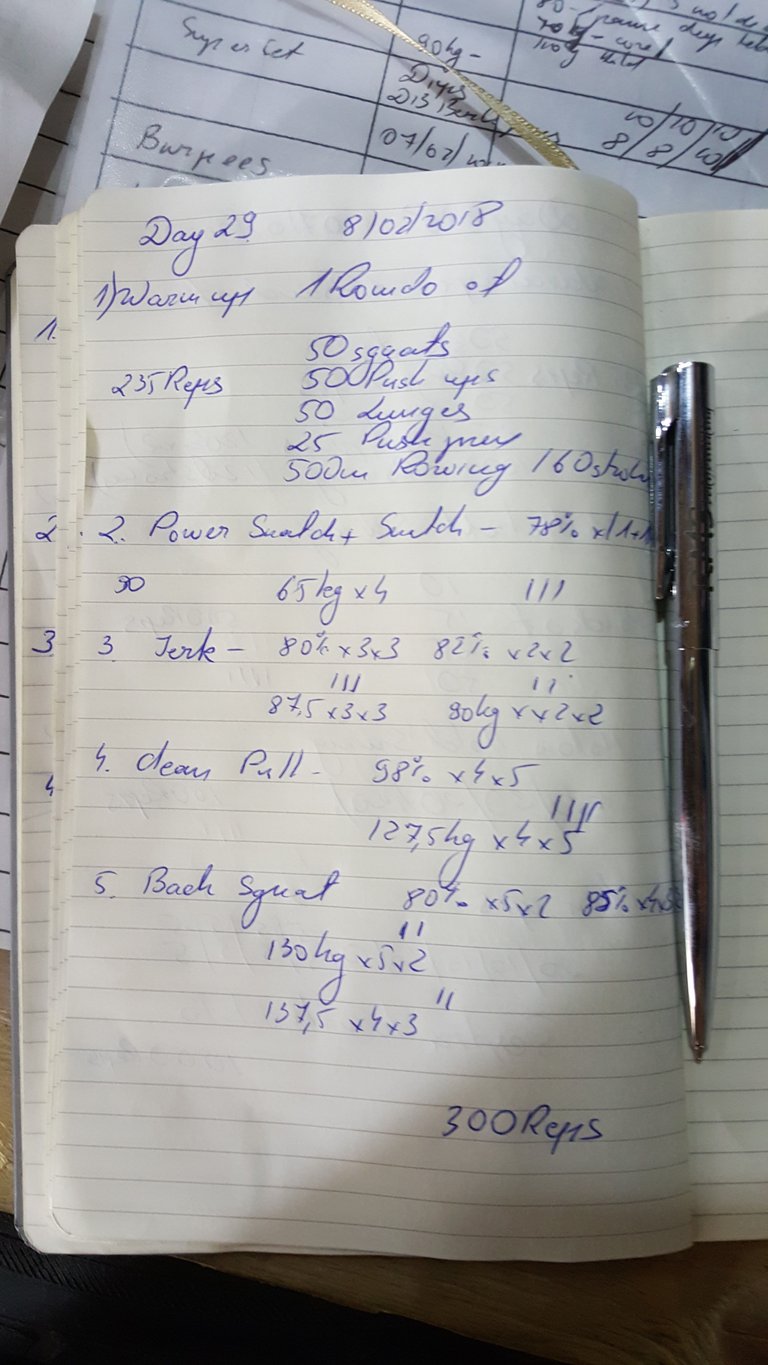 Super Set
90kg -
Burpees
07/02/
10/10/10
8/8/10
Day 29 8/02/2018
1) Warm up 1 Rounds of
1.
50 squats
235 Reps 50 Push ups
50 Lunges
25 Push press
500m Rowing / 60 str
2. 2. Power Snatch + Snatch - 78% x (1+1
90 65kg x 4 III
3 3. Jerk - 80% x3x3 82% x2x2
III II
87,5 x3x3 90kg x x2x2
4. Clean Pull - 98% x4x5
4
IIII
127,5kg x4x5
5. Back Squat 80% x5x2 85% x4x3
II
130kg x5x2
II
137,5 x4x3
300 Reps